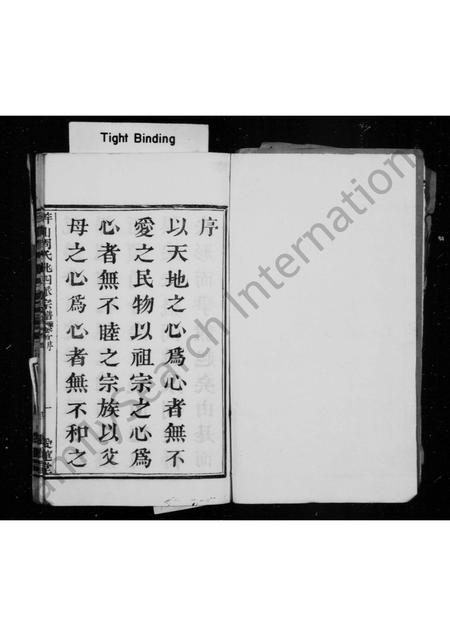 Tight Binding
序
以天地之心爲心者無不
愛之民物以祖宗之心爲
心者無不睦之宗族以父
母之心爲心者無不和之
愛蓮堂
FamilySearch International